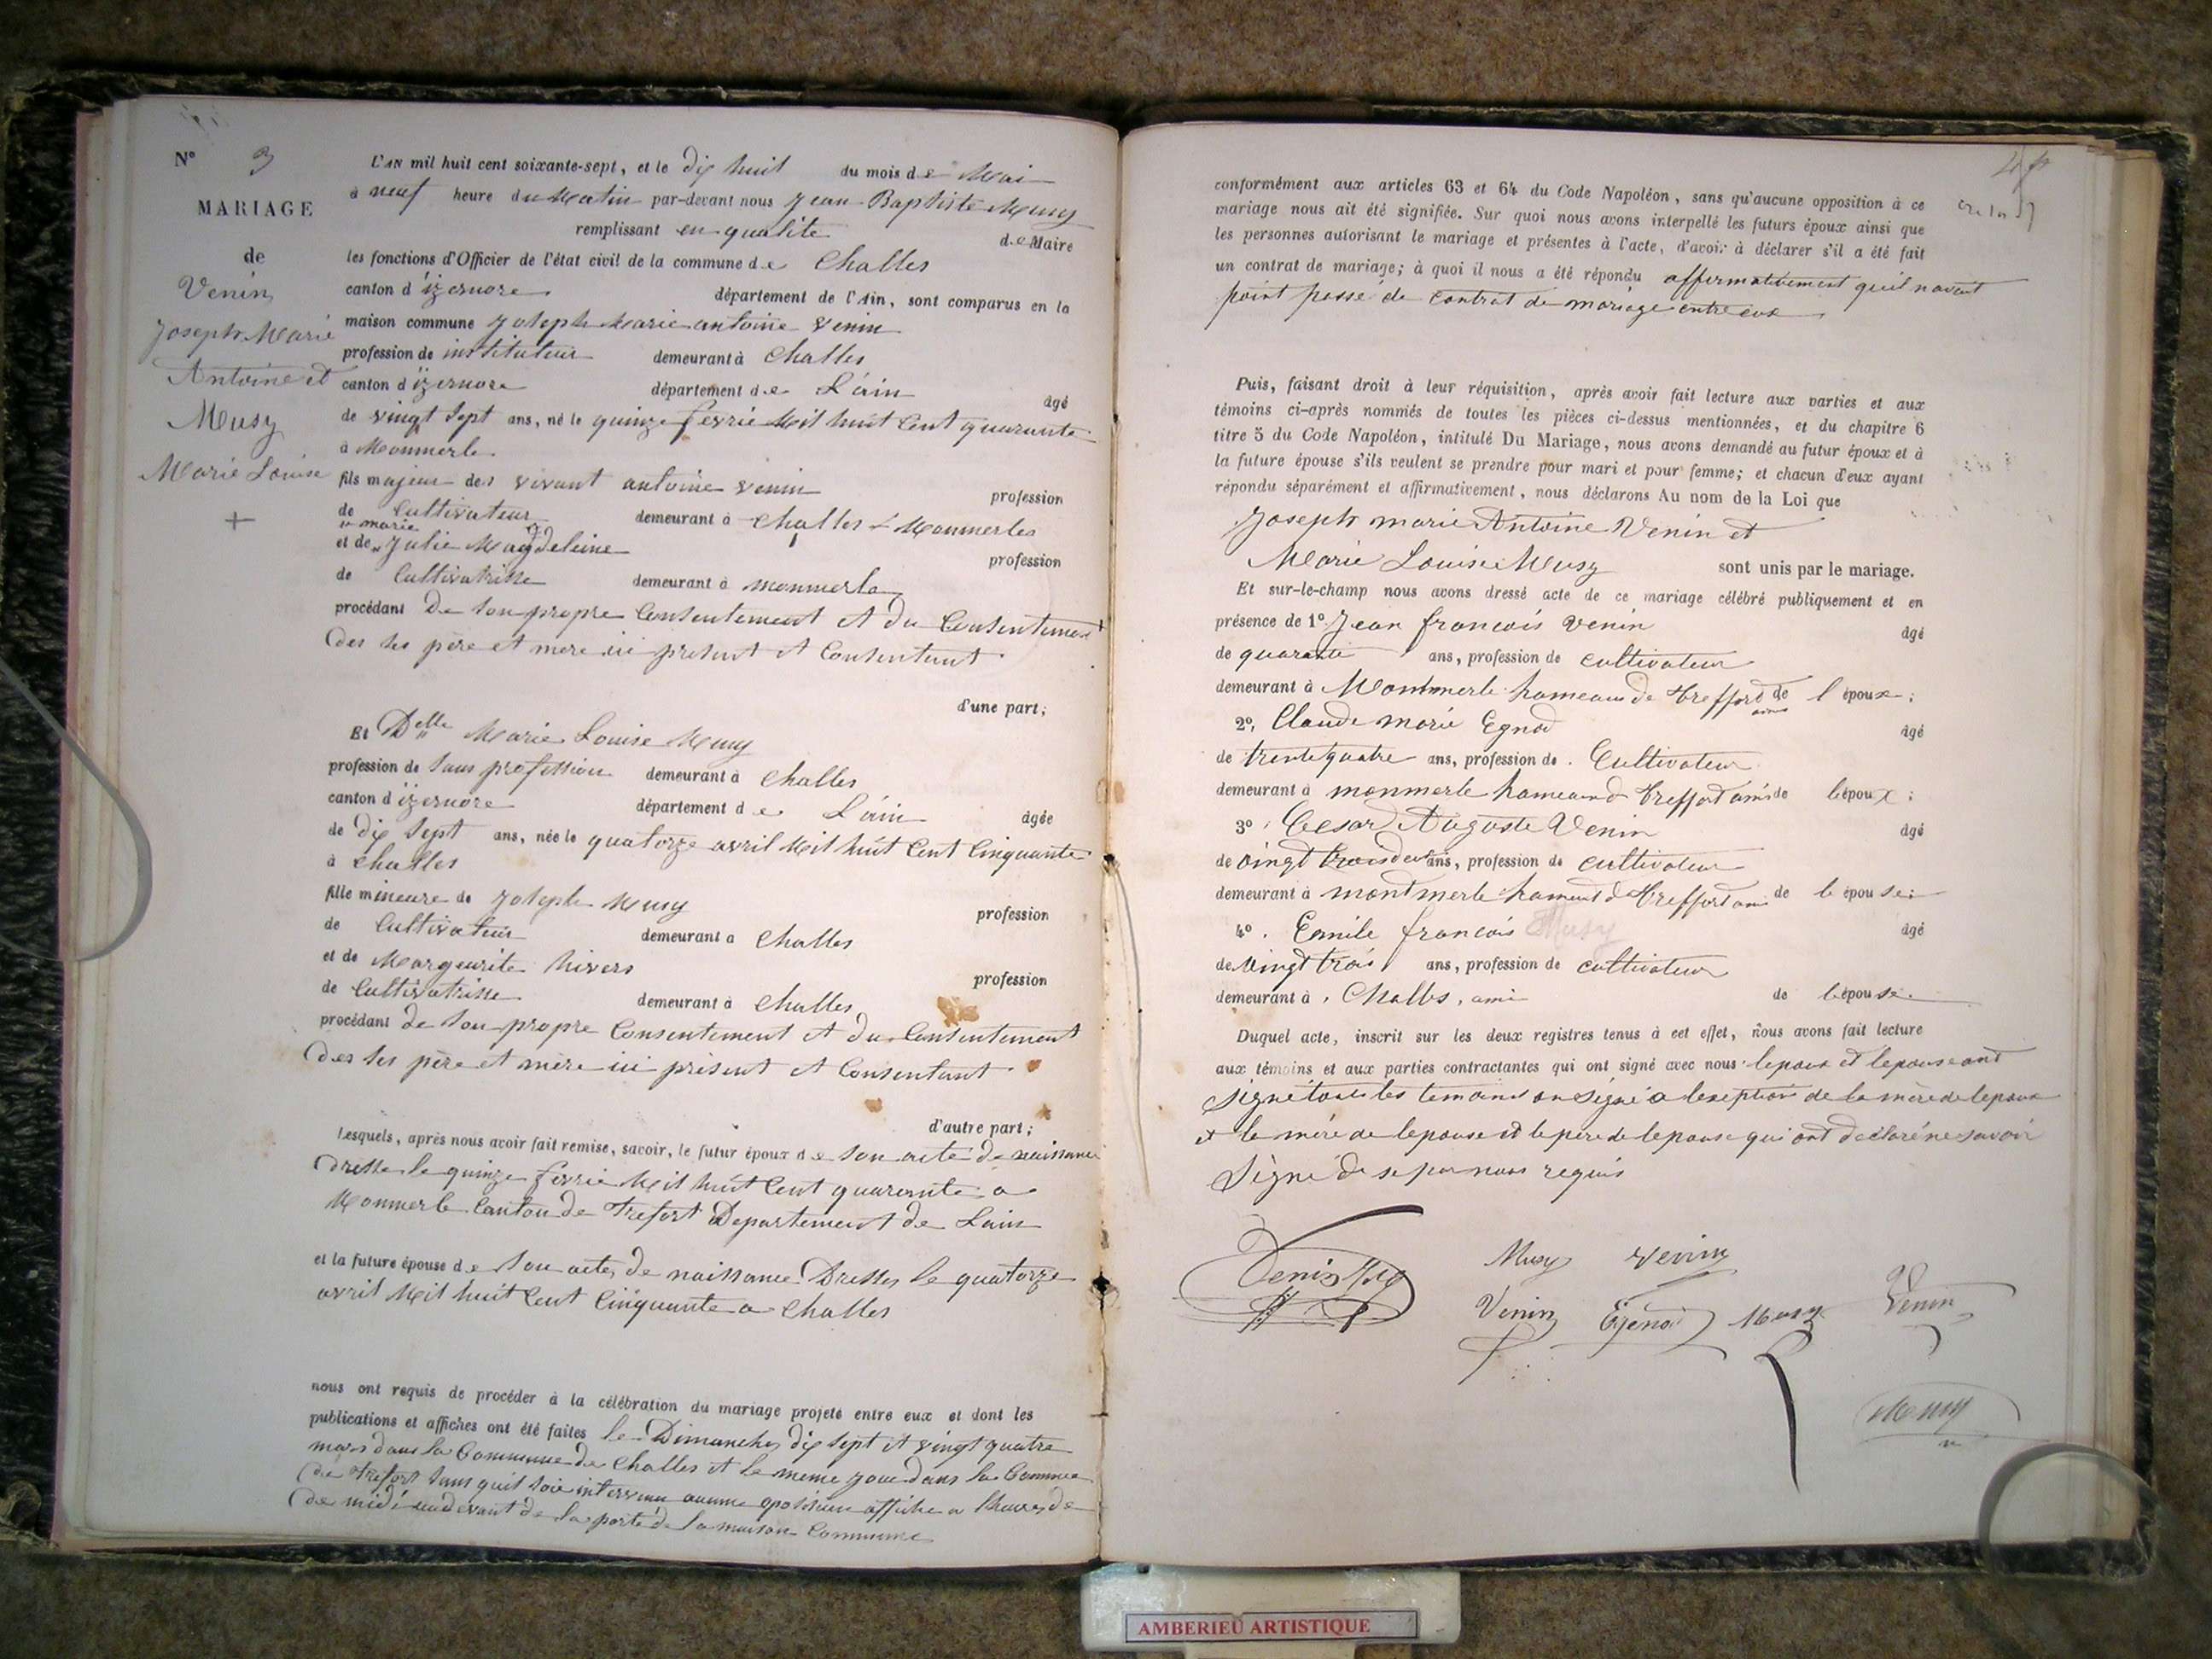 N° 3
MARIAGE
de
Venin
Joseph Marie
Antoine et
Musy
Marie Louise
+
L'AN mil huit cent soixante-sept, et le dix huit du mois de Mai
à neuf heure du Matin par-devant nous Jean Baptiste Musy
remplissant en qualité de Maire
les fonctions d'Officier de l'état civil de la commune de Challes
canton d'izernore département de l'Ain, sont comparus en la
maison commune Joseph Marie antoine Venin
profession de instituteur demeurant à Challes
canton d'izernore département de L'ain âgé
de vingt sept ans, né le quinze fevrie Mil huit Cent quarante
à Monmerle
fils majeur des vivant antoine venin profession
de Cultivateur demeurant à Challes Monmerles
et de marie Julie Magdeleine profession
de Cultivatrisse demeurant à monmerle
procédant De son propre Consentement et du Consentement
des ses père et mere ici present et Consentant
d'une part;
Et Delle Marie Louise Musy
profession de Sans profession demeurant à Challes
canton d'izernore département de L'ain âgée
de dix sept ans, née le quatorze avril Mil huit Cent Cinquante
à Challes
fille mineure de Joseph Musy profession
de Cultivateur demeurant a Challes
et de Marguerite hivers profession
de Cultivatrisse demeurant à Challes
procédant de son propre Consentement et du Consentement
des ses père et mère ici présent et Consentant
d'autre part;
Lesquels, après nous avoir fait remise, savoir, le futur époux de son acte de naissance
Dresse le quinze fevrie Mil huit Cent quarante a
Monmerle Canton de Trefort Departement de Lain
et la future épouse de son acte de naissance Dresse le quatorze
avril Mil huit Cent Cinquante a Challes
nous ont requis de procéder à la célébration du mariage projeté entre eux et dont les
publications et affiches ont été faites le Dimanche dix sept et vingt quatre
mars dans la Commune de Challes et le meme jour dans la Commune
de Trefort sans quil soie intervenu aucune oposition affiche a lheure de
de midi audevant de la porte de la maison Commune
conformément aux articles 63 et 64 du Code Napoléon, sans qu'aucune opposition à ce
mariage nous ait été signifiée. Sur quoi nous avons interpellé les futurs époux ainsi que
les personnes autorisant le mariage et présentes à l'acte, d'avoir à déclarer s'il a été fait
un contrat de mariage; à quoi il nous a été répondu affirmativement quil navait
point passé de contrat de mariage entre eux
Puis, faisant droit à leur réquisition, après avoir fait lecture aux parties et aux
témoins ci-après nommés de toutes les pièces ci-dessus mentionnées, et du chapitre 6
titre 5 du Code Napoléon, intitulé Du Mariage, nous avons demandé au futur époux et à
la future épouse s'ils veulent se prendre pour mari et pour femme; et chacun d'eux ayant
répondu séparément et affirmativement, nous déclarons Au nom de la Loi que
Joseph marie Antoine Venin et
Marie Louise Musy sont unis par le mariage.
Et sur-le-champ nous avons dressé acte de ce mariage célébré publiquement et en
présence de 1° Jean francois Venin âgé
de quarante ans, profession de cultivateur
demeurant à Montmerle hameau de treffort ami de l'époux;
2°, Claude marie Egnod âgé
de trente quatre ans, profession de Cultivateur
demeurant à monmerle hameau d treffort ami de l'époux;
3° Cesar Auguste Venin âgé
de vingt ans, profession de cultivateur
demeurant à montmerle hameau d treffort ami de l'épouse;
4°. Emile francois Musy âgé
de Vingt trois ans, profession de cultivateur
demeurant à Challes, ami de l'épouse.
Duquel acte, inscrit sur les deux registres tenus à cet effet, nous avons fait lecture
aux témoins et aux parties contractantes qui ont signé avec nous lepoux et lepouse ont
signé tous les temoins on signé a lexeption de la mère de lepoux
et le mère de lepouse et le père de lepouse qui ont declaré ne savoir
signé de se par nous requis
Venin Musy Venin
Venin Egnod Musy Venin
Musy
AMBERIEU ARTISTIQUE